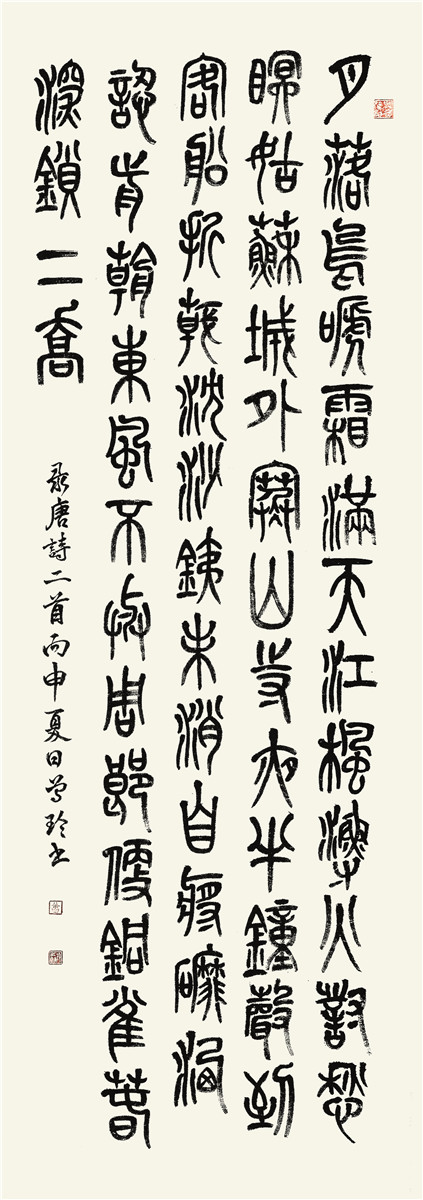 月落烏嗁霜滿天江楓漁火對愁
眠姑蘇城外寒山寺夜半鐘聲到
客船折戟沈沙銕未消自將磨洗
認前朝東風不與周郎便銅雀春
深鎖二喬
录唐詩二首丙申夏日曾玲书